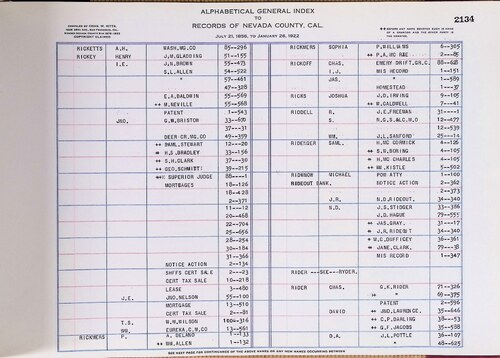 ALPHABETICAL GENERAL INDEX
TO
RECORDS OF NEVADA COUNTY, CAL.
JULY 21, 1856, TO JANUARY 28, 1922
2134
COPYRIGHT CLAIMED
RICKETTS A.H. WASH.MG.CO 85--296
RICKEY HENRY J.H.GLADDING 51--155
I.E. J.H.BROWN 55--473
S.L.ALLEN 54--522
" 57--461
47--328
E.A.BALDWIN 55--569
↔ M.NEVILLE 55--568
PATENT 1--543
JNO. G.W.BRISTOR 33--670
37---31
DEER CR.MG.CO 49--359
↔ SAML.STEWART 12---20
↔ H.S.BRADLEY 33--156
↔ S.H.CLARK 37---30
↔ GEO.SCHMITTE 39--215
↔ SUPERIOR JUDGE 88----1
MORTGAGES 18--126
18--428
2--371
11---12
20--468
22--704
25--656
28--254
28--184
31--366
NOTICE ACTION 2--134
SHFFS CERT SALE 2---23
CERT TAX SALE 10--218
LEASE 3--480
J.E. JNO.NELSON 55--100
MORTGAGE 13--510
CERT TAX SALE 2---81
T.S. W.M.WILSON 100--316
WM. EUREKA C.M.CO 13--561
RICKMERS P. A. DELANO 1--133
↔ WM.ALLEN 1--132
RICKMERS SOPHIA P.WILLIAMS 6--305
↔ P.A.MC RAE 2---85
RICKOFF CHAS. EMERY DRIFT,GR.C. 88--628
I.J. MIS RECORD 1--151
JAS. " 1--589
HOMESTEAD 1---37
RICKS JOSHUA J.D.IRVING 9--105
↔ W.CALDWELL 7---41
RIDDELL R. J.E.FREEMAN 31----1
S. N.G.S.&C.M,O 12--477
12--539
WM. J.L.SANFORD 25---14
RIDENGER SAML. H.MC CORMICK 4--126
↔ S.N.BORING 4--105
↔ H.MC CHARLES 4--105
↔ WM.KISTLE 5--502
RIDMNON MICHAEL POR ATTY 1--100
RIDEOUT BANK. NOTICE ACTION 2--362
2--373
J.R. N.D.RIDEOUT. 34--340
N.D. J.S.STIDGER 33--386
J.G.HAGUE 79--555
↔ JAS.GRAY. 31---17
↔ J.R.RIDEOUT 34--340
↔ M.C.DUFFICEY 36--361
↔ JANE.CLARK. 79---38
MIS RECORD 1--347
RIDER ---SEE---RYDER.
RIDER CHAS. G.H.RIDER 71--326
↔ " 69--375
PATENT 2--596
DAVID ↔ JNO.LAURENCE. 35--646
↔ C.P.DARLING 38---53
↔ G.F.JACOBS 35--588
D.A. J.L.POTTLE 36--107
" 48--625
SEE NEXT PAGE FOR CONTINUANCE OF THE ABOVE NAMES OR ANY NEW NAMES OCCURRING BETWEEN